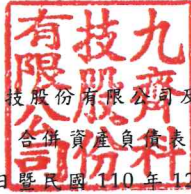 九齊科
技股份
有限公司
技股份有限公司及
合併資產負債表
日暨民國 110 年 1